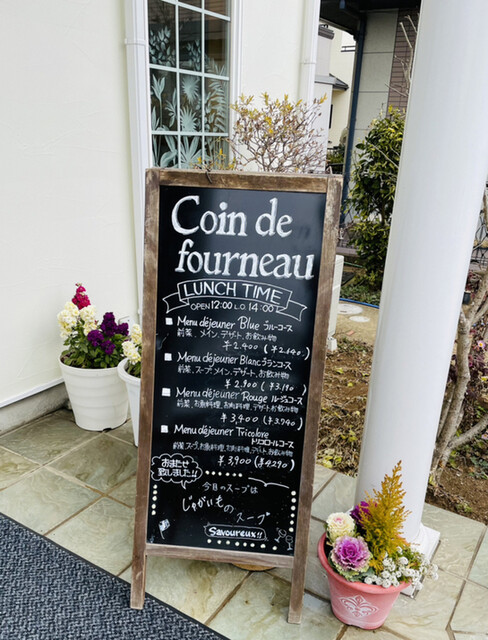 Coin de
fourneau
LUNCH TIME
OPEN 12:00 L.O. 14:00
Menu déjeuner Blue ブルーコース
前菜、メイン、デザート、お飲み物
¥2,400 (¥2,640)
Menu déjeuner Blanc ブランコース
前菜、スープ、メイン、デザート、お飲み物
¥2,900 (¥3,190)
Menu déjeuner Rouge ルージュコース
前菜、お魚料理、お肉料理、デザート、お飲み物
¥3,400 (¥3,740)
Menu déjeuner Tricolore
トリコロールコース
前菜、スープ、お魚料理、お肉料理、デザート、お飲み物
¥3,900 (¥4,290)
おまたせ
致しました!!
今日のスープは
じゃがいもの
スープ
Savoureux!!